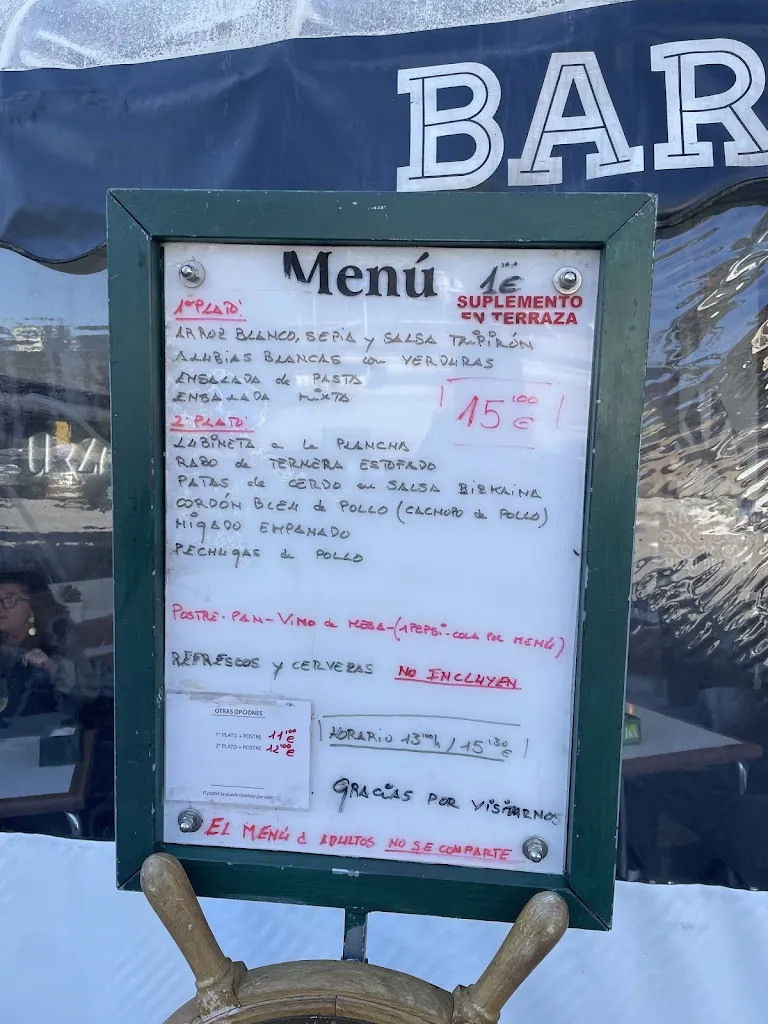 BAR
Menú 1'00€
SUPLEMENTO
EN TERRAZA
1er PLATO
ARROZ BLANCO, SEPIA y SALSA TXIPIRÓN
ALUBIAS BLANCAS con VERDURAS
ENSALADA de PASTA
ENSALADA MIXTA
15'00 €
2º PLATO
LUBINETA a la PLANCHA
RABO de TERNERA ESTOFADO
PATAS de CERDO en SALSA BIZKAINA
CORDÓN BLEU de POLLO (CACHOPO de POLLO)
HIGADO EMPANADO
PECHUGAS de POLLO
POSTRE-PAN-VINO de MESA-(1 PEPSI-COLA POR MENÚ)
REFRESCOS y CERVEZAS NO INCLUYEN
OTRAS OPCIONES
1º PLATO + POSTRE 11'00€
2º PLATO + POSTRE 12'00€
El postre se puede cambiar por café
HORARIO 13'00h / 15'30
GRACIAS POR VISITARNOS
EL MENÚ de ADULTOS NO SE COMPARTE